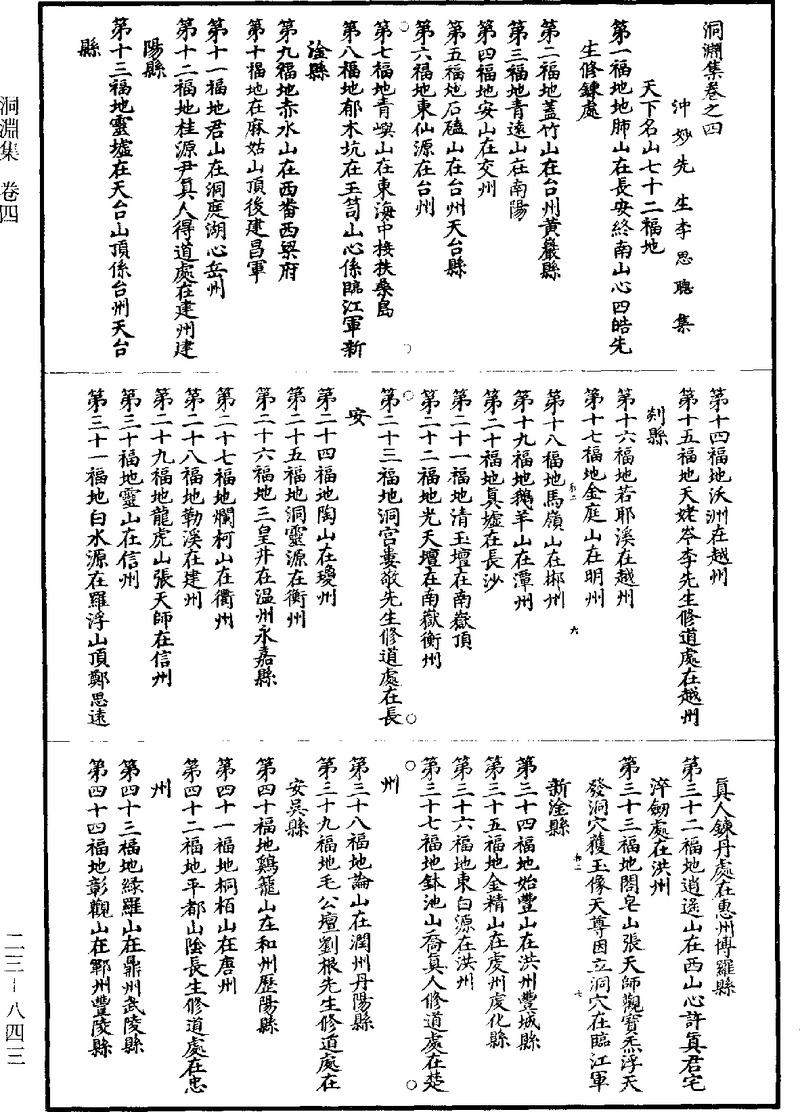 洞淵集卷之四
沖妙先生李思聰集
天下名山七十二福地
第一福地地肺山在長安終南山心四皓先
生修鍊處
第二福地蓋竹山在台州黃巖縣
第三福地青遠山在南陽
第四福地安山在交州
第五福地石磕山在台州天台縣
第六福地東仙源在台州
第七福地青嶼山在東海中接扶桑島
第八福地郁木坑在玉笥山心係臨江軍新
淦縣
第九福地赤水山在西番西梁府
第十福地在麻姑山頂後建昌軍
第十一福地君山在洞庭湖心岳州
第十二福地桂源尹真人得道處在建州建
陽縣
第十三福地靈墟在天台山頂係台州天台
縣
第十四福地沃洲在越州
第十五福地天姥岑李先生修道處在越州
剡縣
第十六福地若耶溪在越州
第十七福地金庭山在明州
第十八福地馬嶺山在郴州
第十九福地鵝羊山在潭州
第二十福地真墟在長沙
第二十一福地清玉壇在南嶽頂
第二十二福地光天壇在南嶽衡州
第二十三福地洞宮婁敬先生修道處在長
安
第二十四福地陶山在瓊州
第二十五福地洞靈源在衡州
第二十六福地三皇井在溫州永嘉縣
第二十七福地爛柯山在衢州
第二十八福地勒溪在建州
第二十九福地龍虎山張天師在信州
第三十福地靈山在信州
第三十一福地白水源在羅浮山頂鄭思遠
真人鍊丹處在惠州博羅縣
第三十二福地逍遙山在西山心許真君宅
淬劒處在洪州
第三十三福地閤皂山張天師觀寶炁浮天
發洞穴獲玉像天尊因立洞穴在臨江軍
新淦縣
第三十四福地始豐山在洪州豐城縣
第三十五福地金精山在虔州虔化縣
第三十六福地東白源在洪州
第三十七福地鉢池山喬真人修道處在楚
州
第三十八福地論山在潤州丹陽縣
第三十九福地毛公壇劉根先生修道處在
安吳縣
第四十福地鷄籠山在和州歷陽縣
第四十一福地桐栢山在唐州
第四十二福地平都山陰長生修道處在忠
州
第四十三福地綠羅山在鼎州武陵縣
第四十四福地彰觀山在鄆州豐陵縣
洞淵集 卷四
二三–八四三